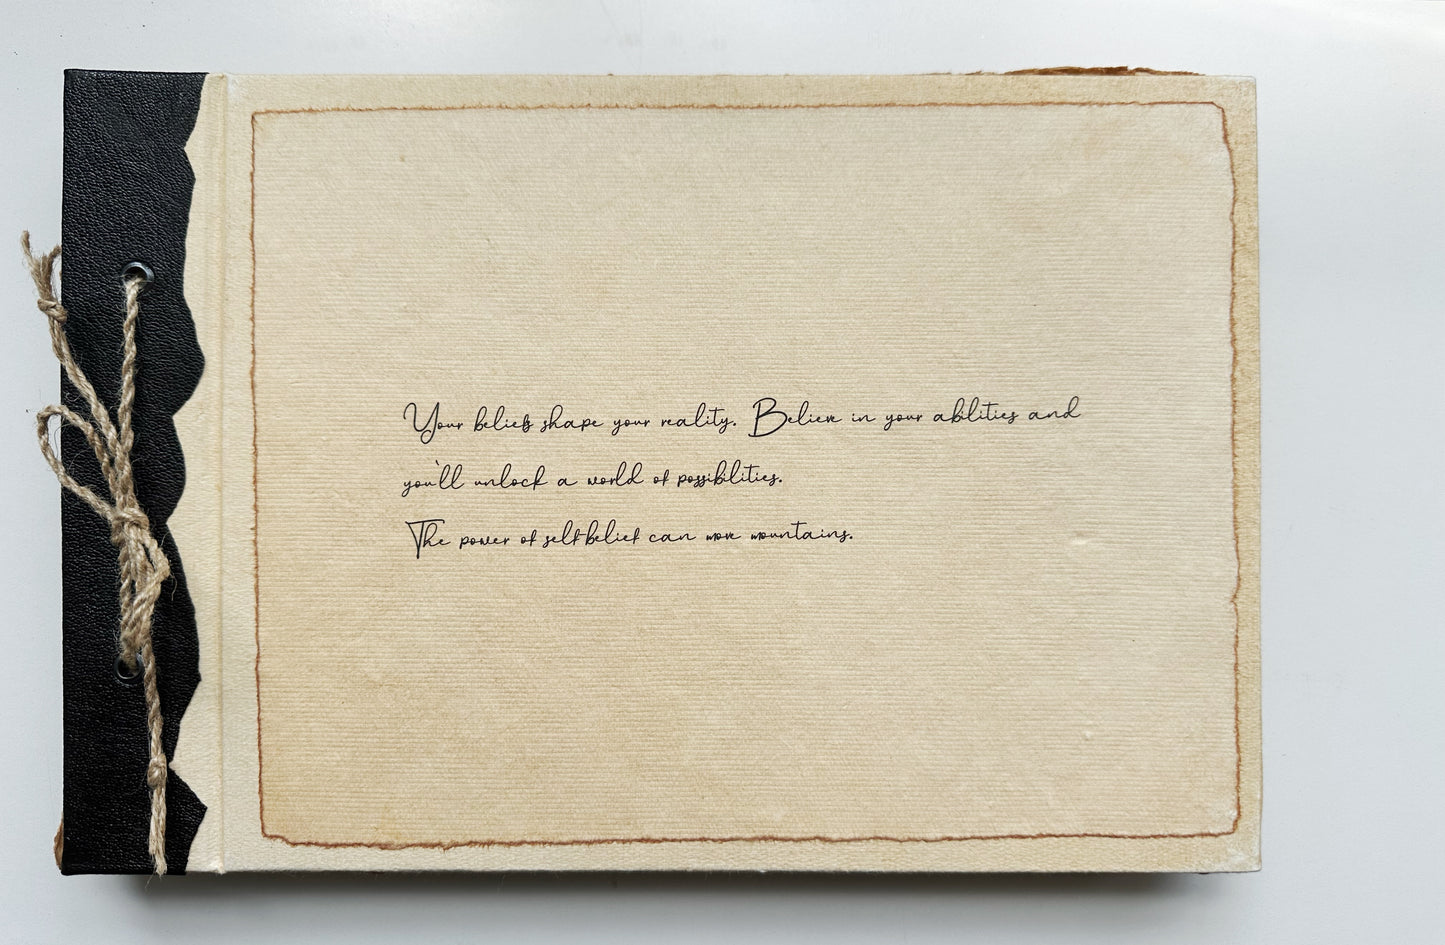 Your beliefs shape your reality. Believe in your abilities and
you'll unlock a world of possibilities.
The power of self-belief can move mountains.